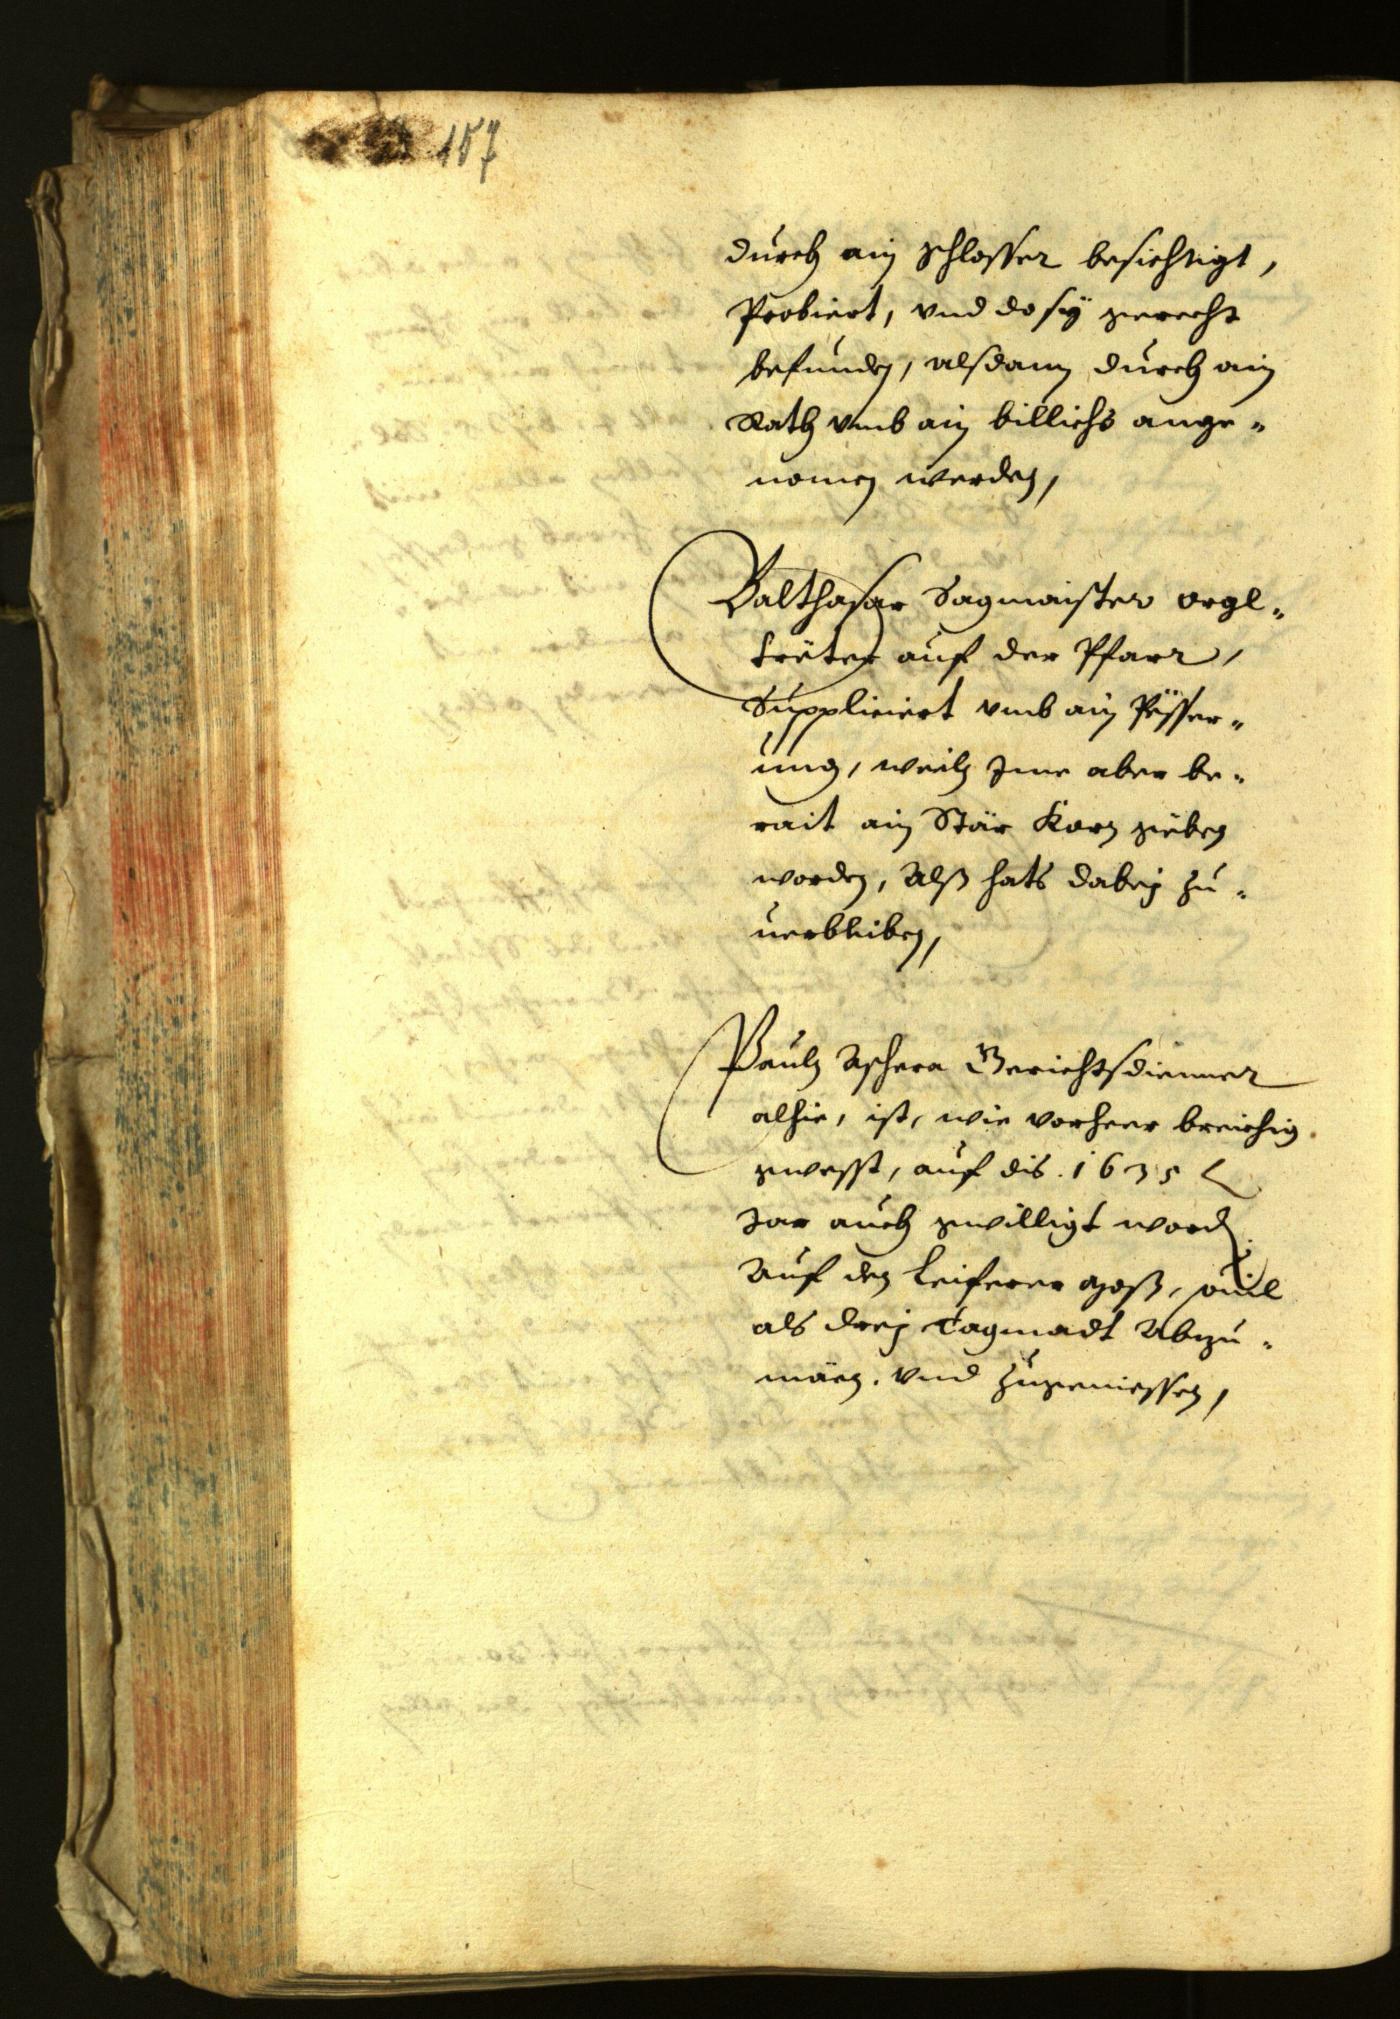 157
durch ain Schlosser besichtigt,
Probiert, vnd do sÿ gerecht
befunden, alsdann durch ain
Rath vmb ain billichs ange-
nomen werden,
Balthasar Sagmaister orgl-
träter auf der Pfarr,
Suppliciert vmb ain Pësser-
ung, weiln Ime aber be-
rait ain Stär Korn geben
worden, Alß hats dabeÿ zu-
uerbleiben,
Pauln Gerichtsdiener
alhie, ist, wie vorheer breichig
gwesst, auf dis. 1635
Jar auch gwilligt worden
Auf den Leiferer Moß, souil
als dreÿ Tagmadt Abzu-
mäen. vnd zugeniessen,